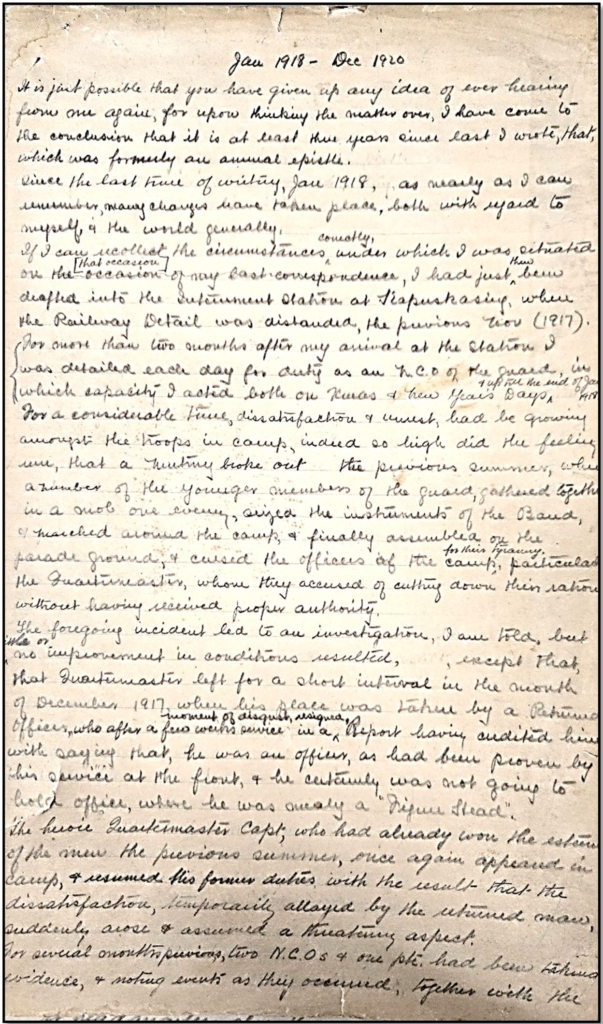 Jan 1918 - Dec 1920
It is just possible that you have given up any idea of ever hearing
from me again, for upon thinking the matter over, I have come to
the conclusion that it is at least three years since last I wrote, that,
which was formerly an annual epistle.
Since the last time of writing, Jan 1918, as nearly as I can
remember, many changes have taken place, both with regard to
myself, & the world generally.
correctly,
If I can recollect the circumstances under which I was situated
[that occasion] then
on the occasion of my last correspondence, I had just been
drafted into the Internment Station at Kapuskasing, where
the Railway Detail was disbanded, the previous Nov (1917).
For more than two months after my arrival at the station I
was detailed each day for duty as an N.C.O of the guard, in
& up till the end of Jan 1918
which capacity I acted both on Xmas & New Years Days
For a considerable time, dissatisfaction & unrest, had be growing
amongst the troops in camp, indeed so high did the feeling
run, that a mutiny broke out the previous summer, when
a number of the younger members of the guard, gathered together
in a mob one evening, seized the instruments of the Band,
& marched around the camp, & finally assembled on the
for their tyranny.
parade ground, & cursed the officers of the camp, particular
the Quartermaster, whom they accused of cutting down their rations
without having received proper authority.
The foregoing incident led to an investigation, I am told, but
little or
no improvement in conditions resulted, except that,
that Quartermaster left for a short interval in the month
of December 1917, when his place was taken by a Returned
moment of disgust, resigned,
Officer, who after a few weeks service in a Report having credited him
with saying that, he was an officer, as had been proven by
his service at the front, & he certainly was not going to
hold office, where he was merely a "Figure Head".
The heroic Quartermaster Capt, who had already won the esteem
of the men the previous summer, once again appeared in
camp, & resumed his former duties with the result that the
dissatisfaction, temporarily allayed by the returned man,
suddenly arose & assumed a threatening aspect.
For several months previous, two N.C.Os & one pte, had been taking
evidence, & noting events as they occurred, together with the